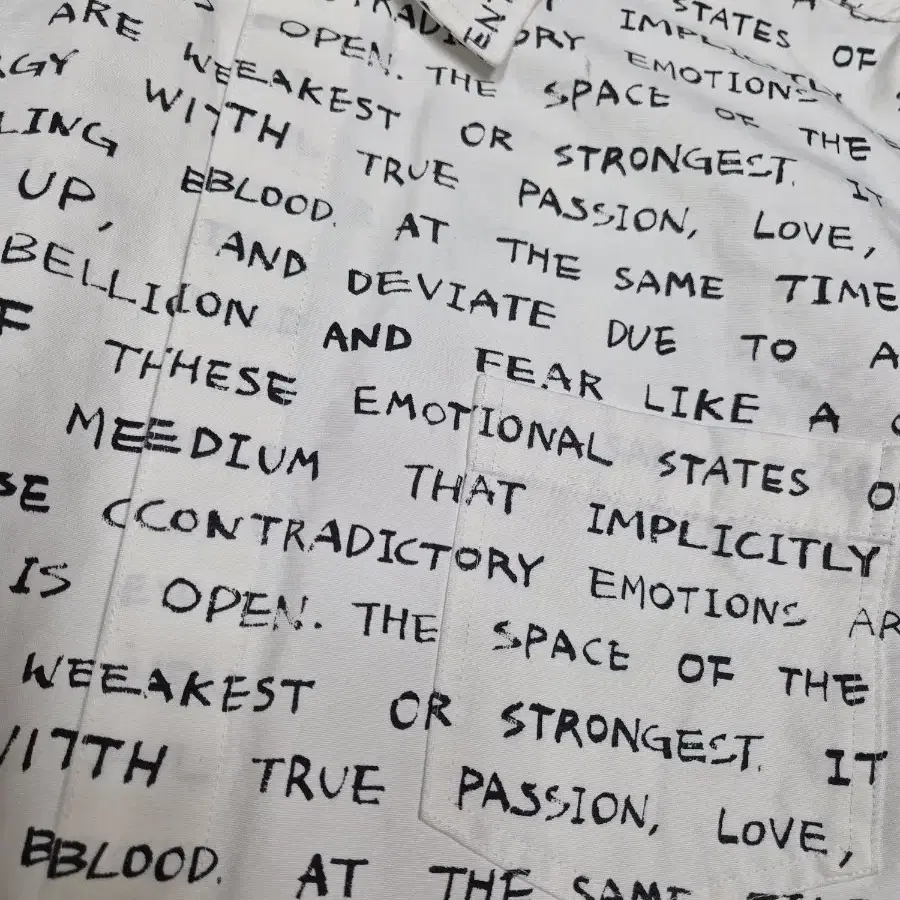 ARE CONTRADICTORY IMPLICITLY STATES OF
OPEN. THE EMOTIONS
WEEAKEST SPACE OF THE
WITTH OR STRONGEST. IT
LING TRUE PASSION, LOVE,
UP, EBBLOOD. AT THE SAME TIME
AND DEVIATE DUE TO A
BELLIION AND FEAR LIKE A
THHESE EMOTIONAL STATES
MEEDIUM THAT IMPLICITLY
SE CCONTRADICTORY EMOTIONS AR
IS OPEN. THE SPACE OF THE
WEEAKEST OR STRONGEST. IT
WITTH TRUE PASSION, LOVE,
BBLOOD. AT THE SAME